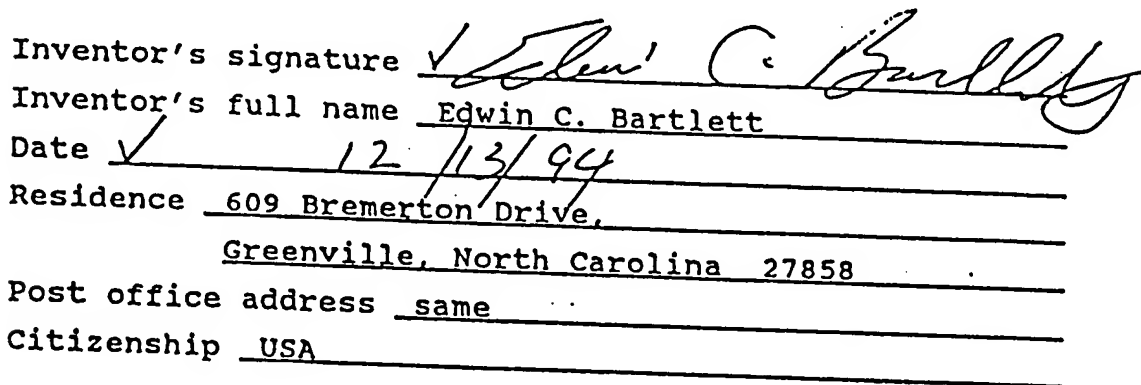 Inventor's signature ✓ Edwin C. Bartlett
Inventor's full name Edwin C. Bartlett
Date ✓ 12/13/94
Residence 609 Bremerton Drive,
Greenville, North Carolina 27858
Post office address same
Citizenship USA